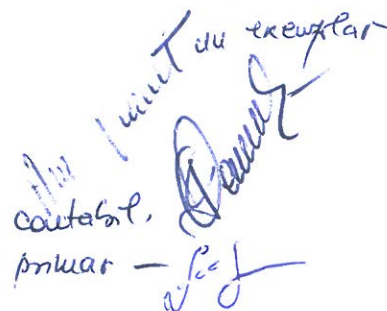 Am primit un exemplar
contabil.
primar —